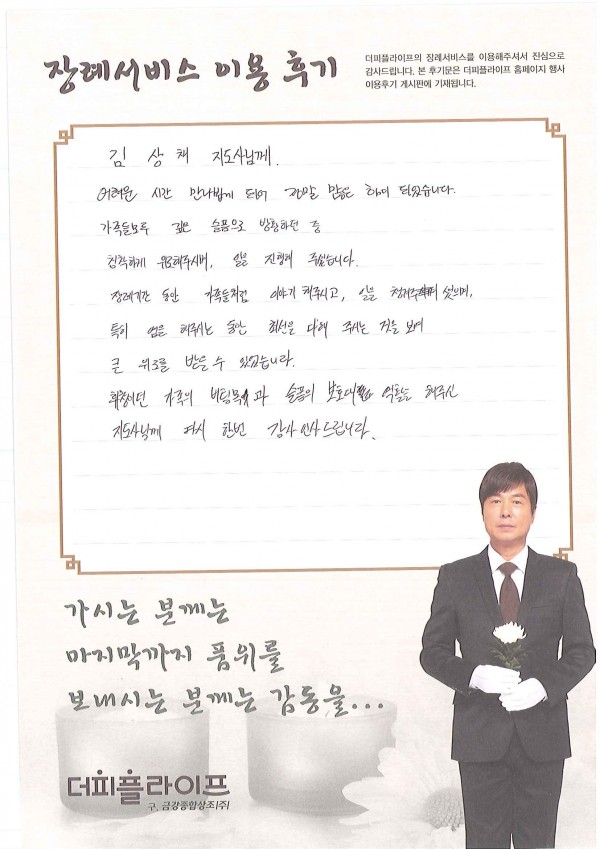 장례서비스 이용 후기
더피플라이프의 장례서비스를 이용해주셔서 진심으로
감사드립니다. 본 후기문은 더피플라이프 홈페이지 행사
이용후기 게시판에 기재됩니다.
김 상 채 지도사님께.
어려운 시간 만나뵙게 되어 정말 많은 힘이 되었습니다.
가족들모두 깊은 슬픔으로 방황하던 중
침착하게 위로해주시며, 일을 진행해 주셨습니다.
장례기간 동안 가족들처럼 이야기 해주시고, 일을
특히 염을 해주시는 동안 최선을 다해 주시는 것을 보며
큰 위로를 받을 수 있었습니다.
가족의 버팀목 과 슬픔의 역할을 해주신
지도사님께 다시 한번 감사 인사드립니다.
가시는 분께는
마지막까지 품위를
보내시는 분께는 감동을...
더피플라이프
구. 금강종합상조(주)